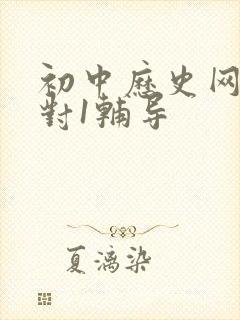 初中历史网
对1辅导
夏漓染